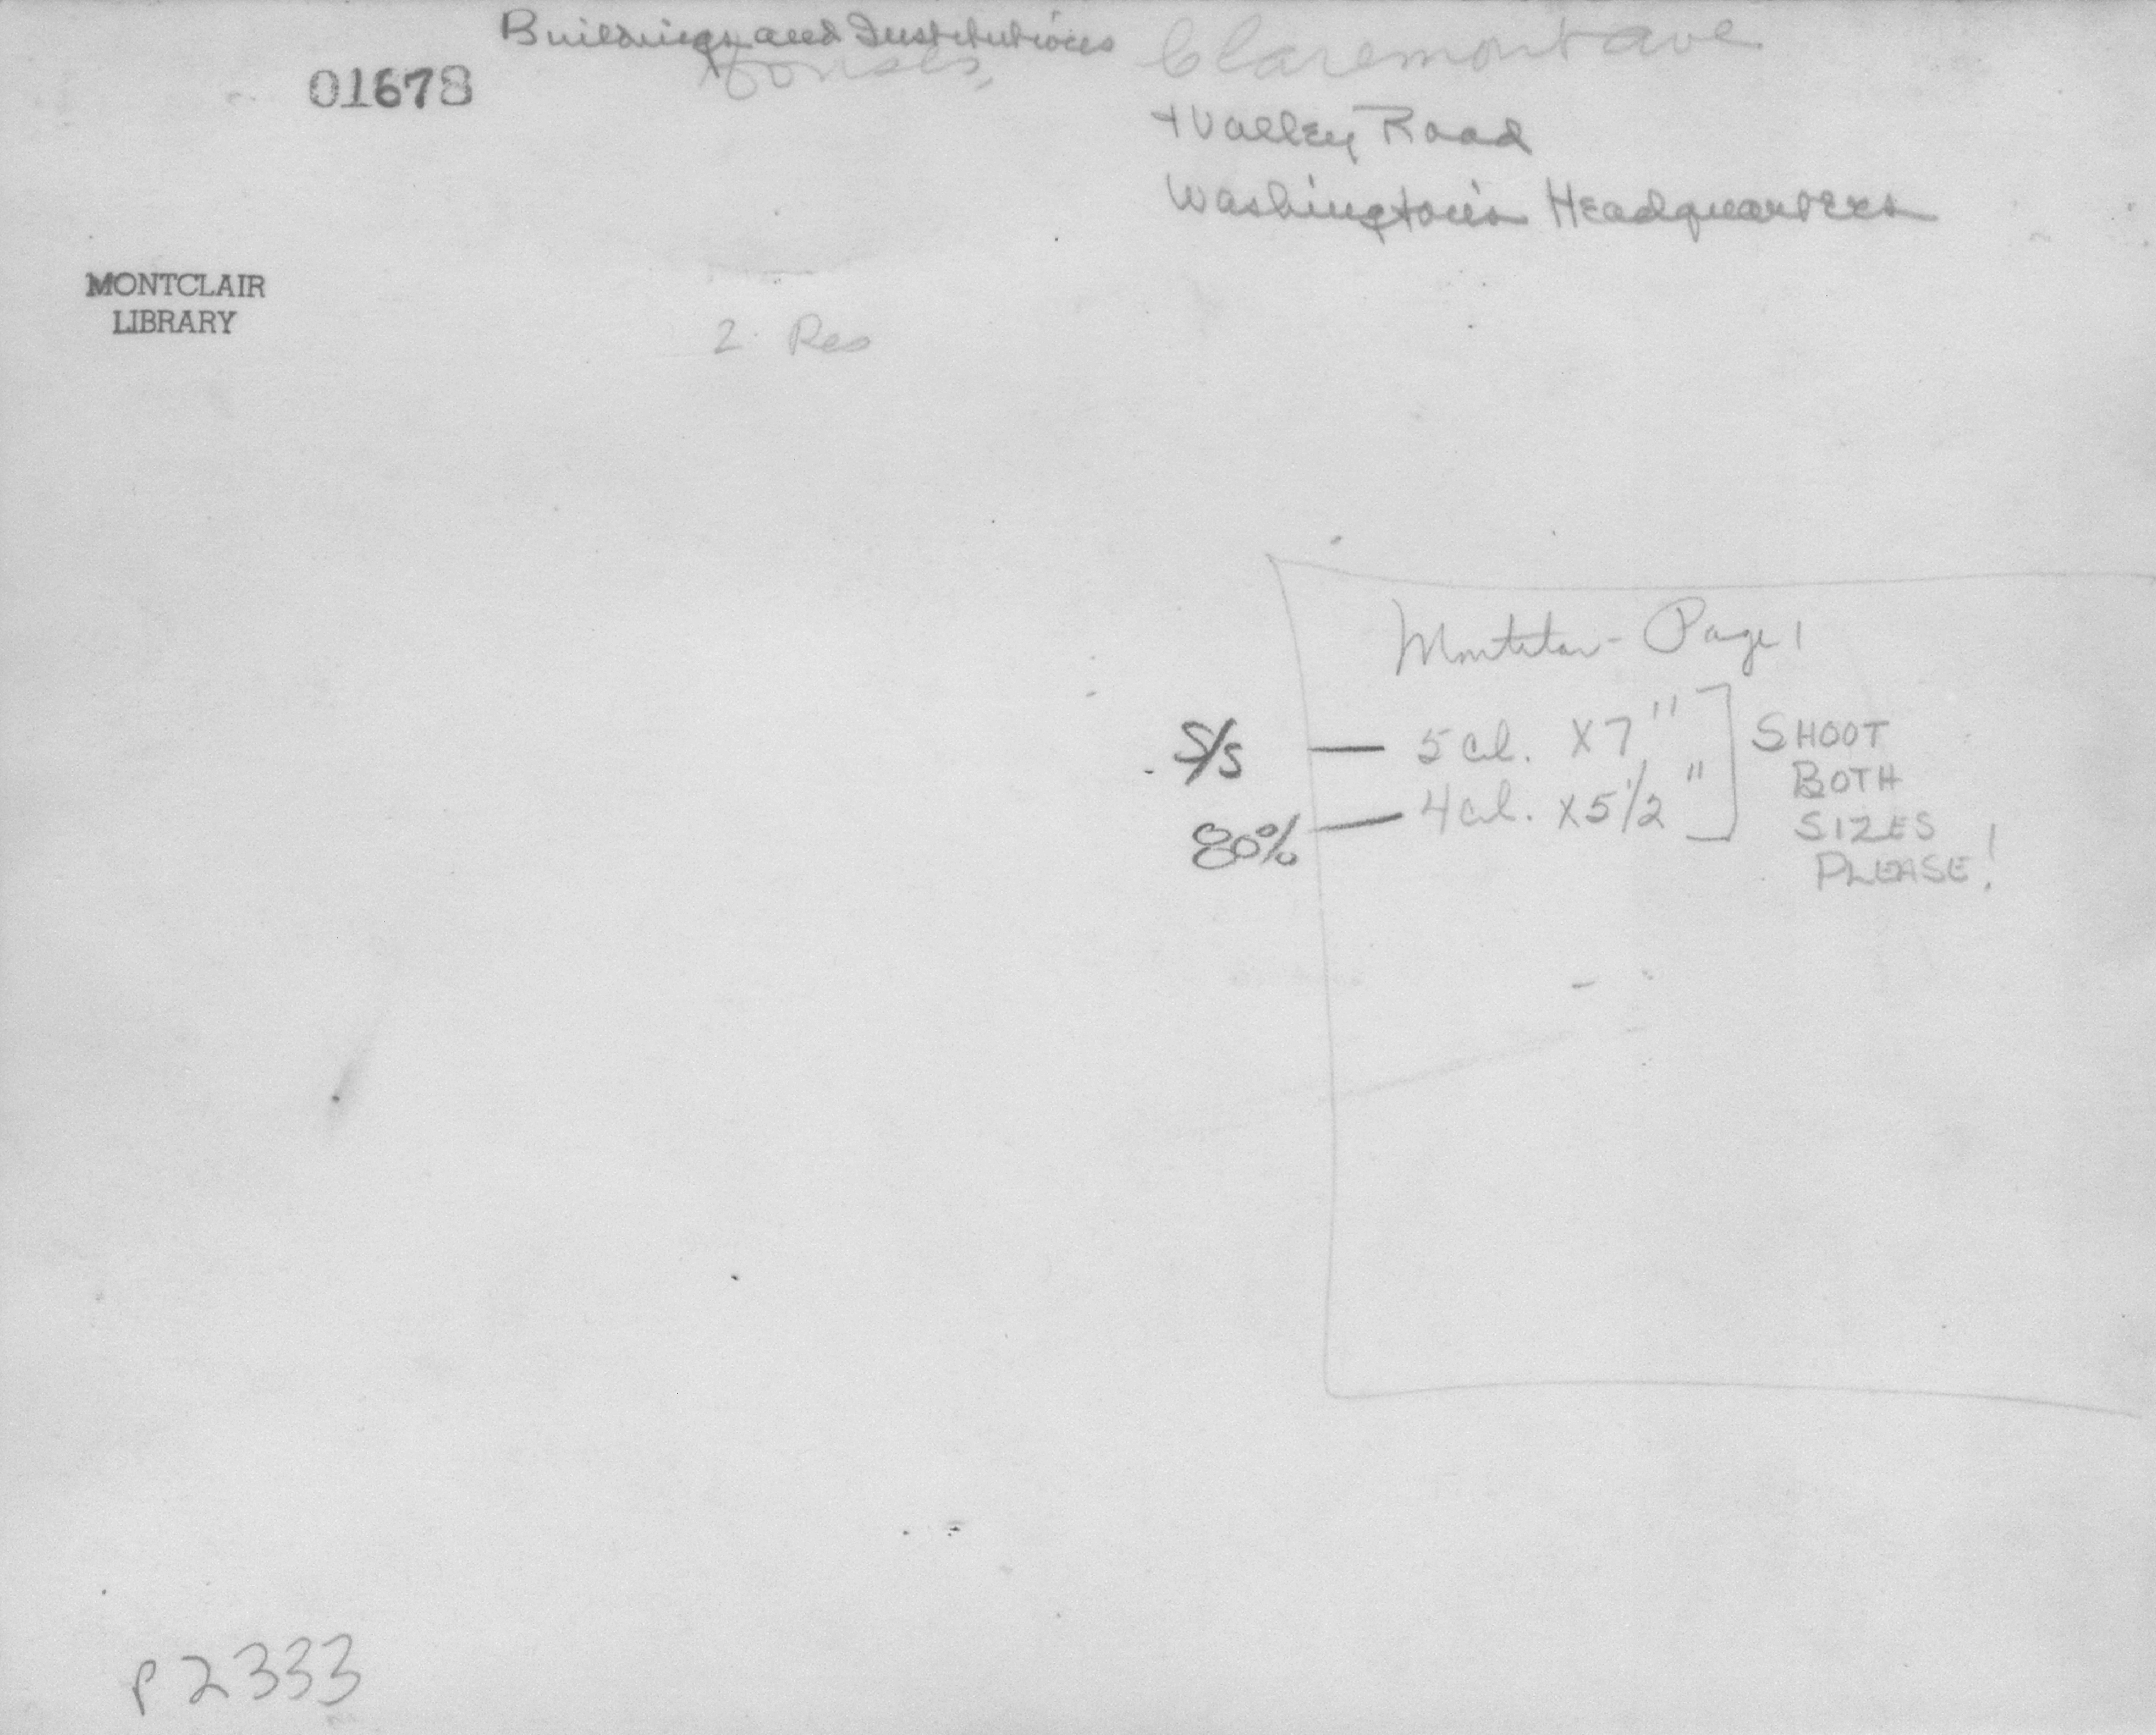 Buildings and Institutions
Houses,
Claremont ave
+ Valley Road
Washington's Headquarters
01678
MONTCLAIR
LIBRARY
2. Res
Page 1
S/s — 5 col. x 7"
80% — 4 col. x 5 1/2"
SHOOT
BOTH
SIZES
PLEASE!
P2333